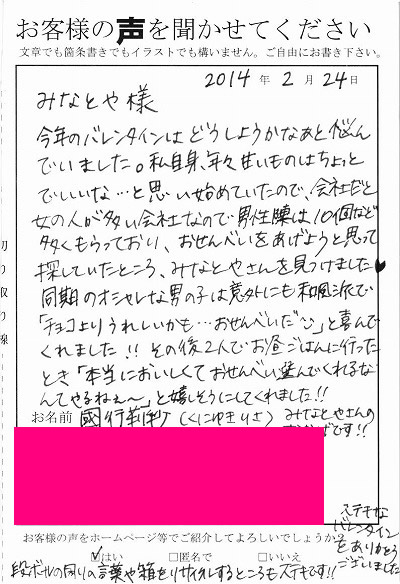 お客様の声を聞かせてください
文章でも箇条書きでもイラストでも構いません。ご自由にお書き下さい。
2014 年 2 月 24 日
みなとや様
今年のバレンタインは どうしようかなあと悩ん
でいました。私自身、年々甘いものはちょっと
でいいな…と思い始めていたので、会社だと
女の人が多い会社なので男性陣は10個など
多くもらっており、おせんべいをあげようと思って
探していたところ、みなとやさんを見つけました♥
同期のオシャレな男の子は意外にも和風派で
「チョコよりうれしいかも…おせんべいだ」と喜んで
くれました!! その後2人でお昼ごはんに行った
とき「本当においしくておせんべい選んでくれるな
んてやるねぇ〜」と嬉しそうにしてくれました!!
みなとやさんの
です!!
お名前 國行莉紗 (くにゆきりさ)
切り取り線
ステキな
バレンタイン
をありがとう
ございました
お客様の声をホームページ等でご紹介してよろしいでしょうか?
☑はい □匿名で □いいえ
段ボールの周りの言葉や箱をリサイクルするところもステキです!!